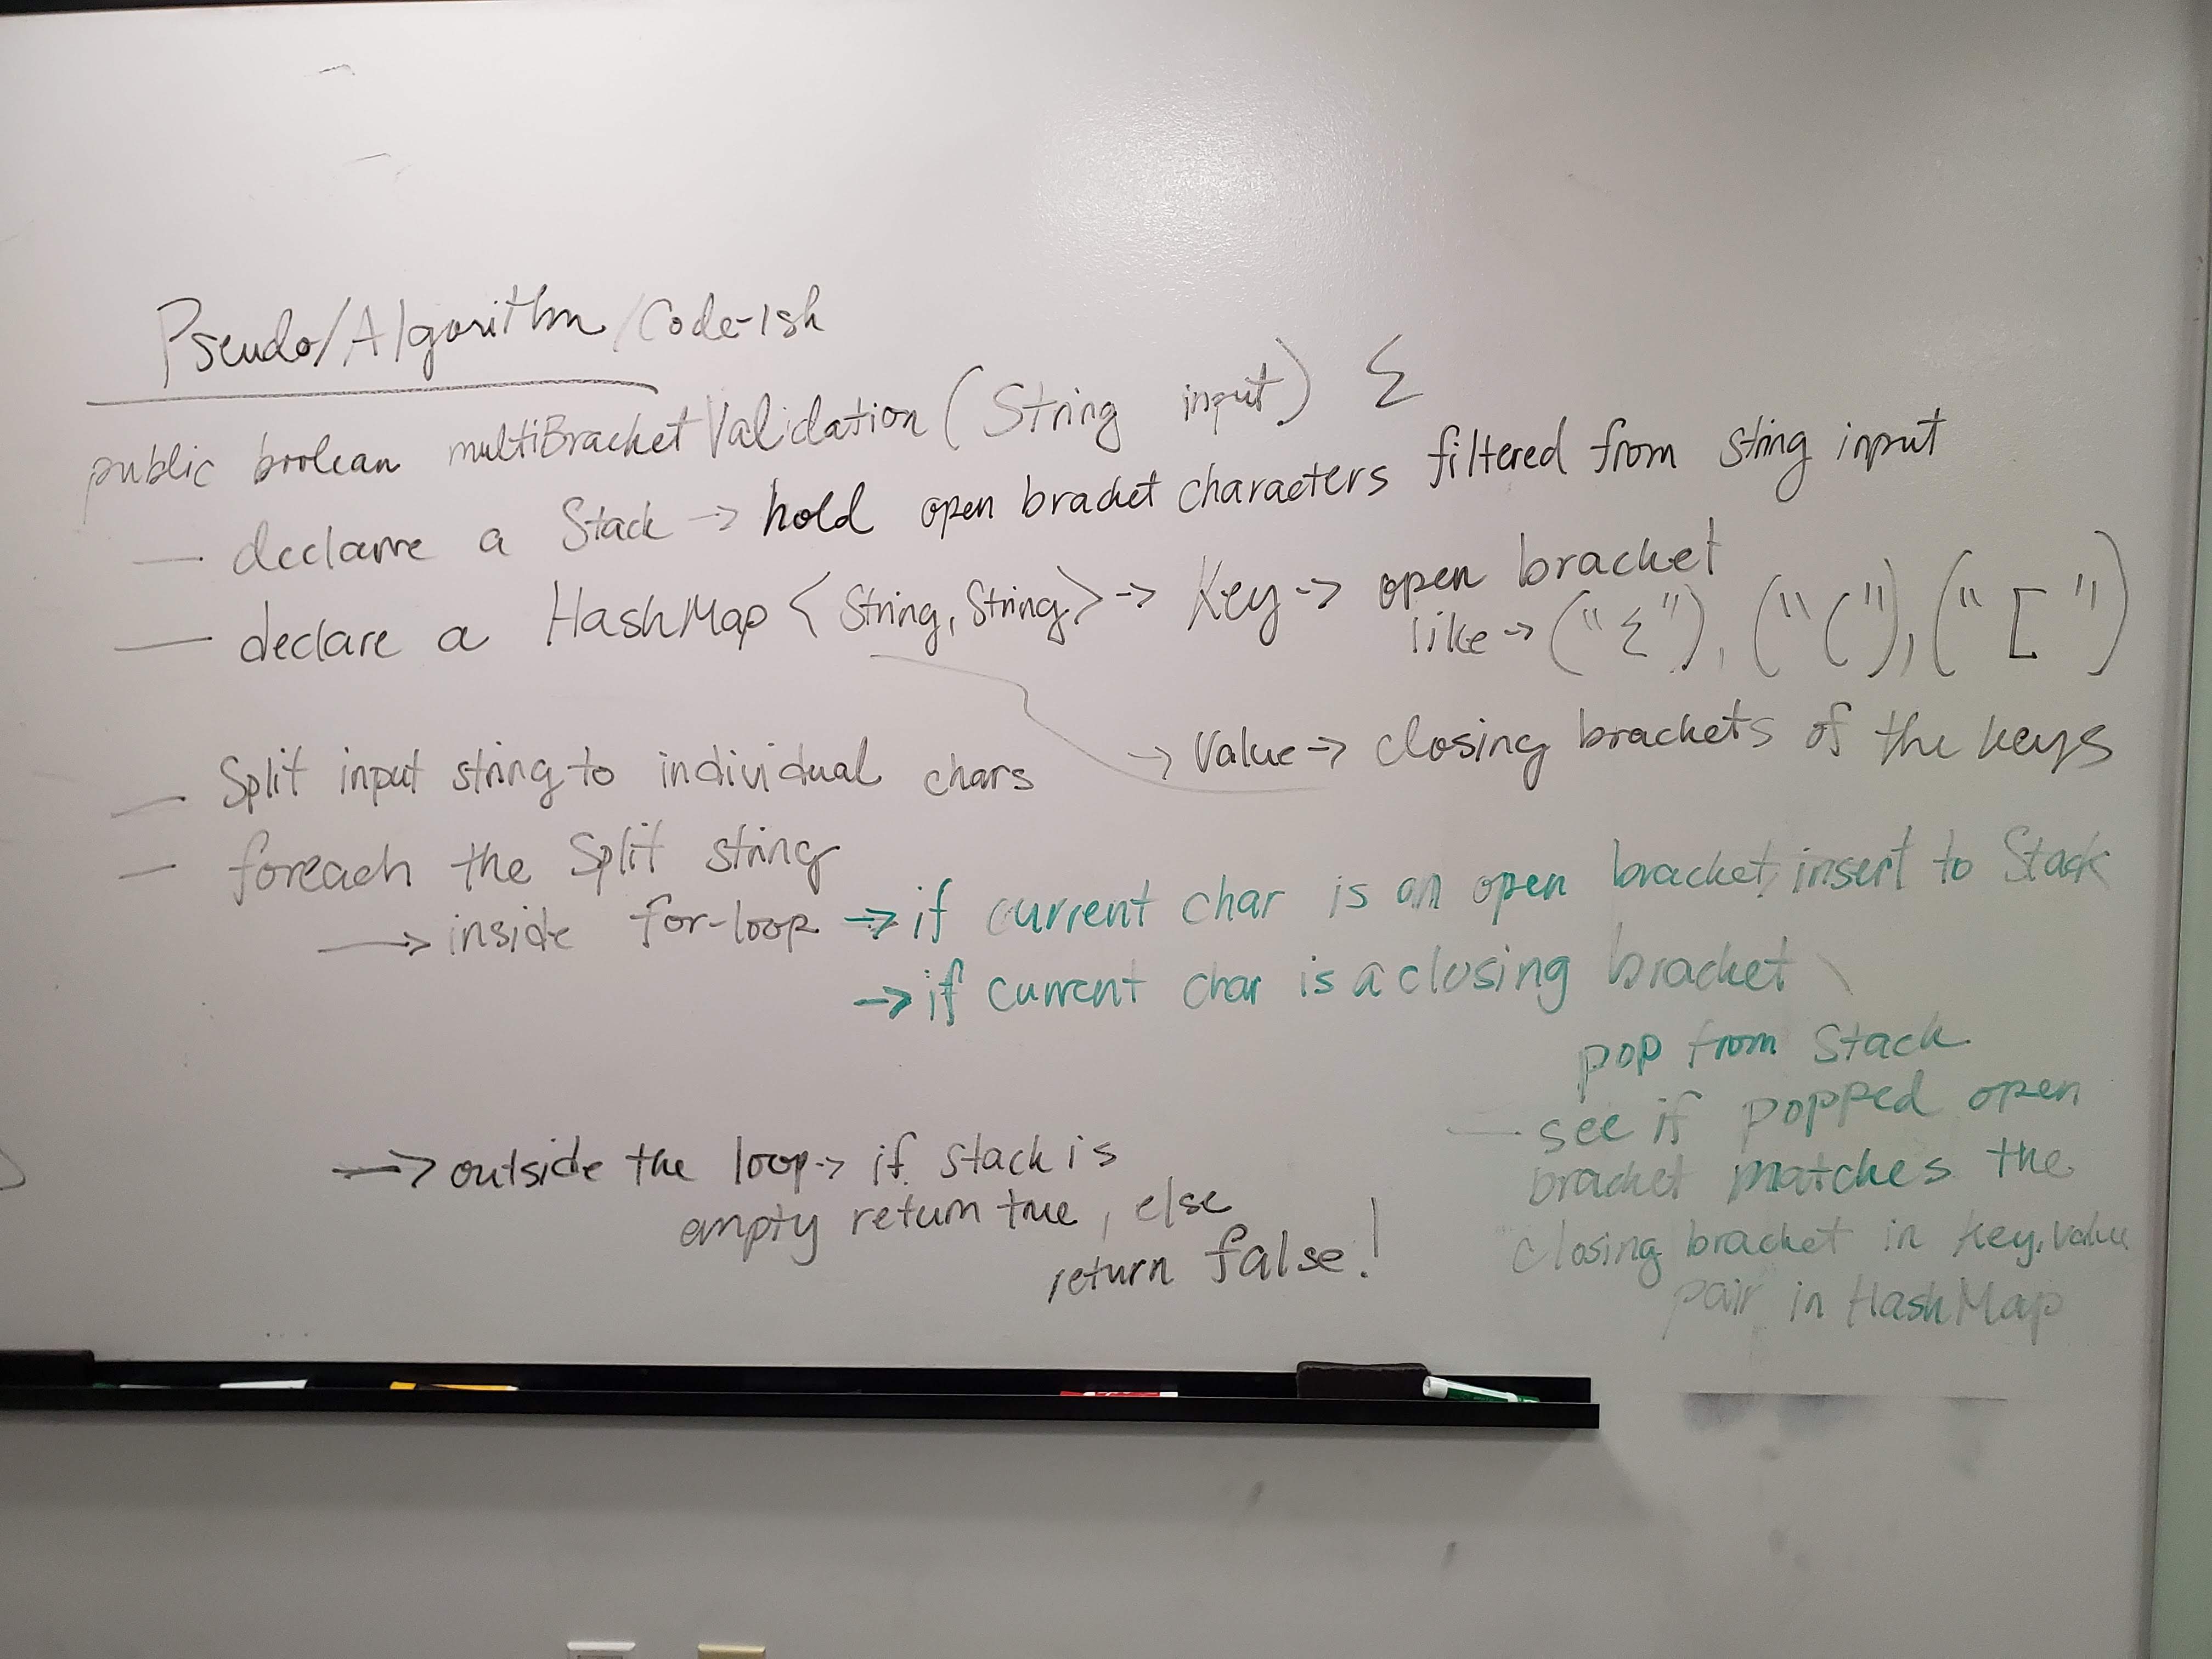 Pseudo/Algorithm/Code-Ish
public boolean multiBracketValidation (String input) {
— declare a Stack -> hold open bracket characters filtered from string input
— declare a HashMap <String, String> -> Key -> open bracket
like -> ("{"), ("("), ("[")
-> Value -> closing brackets of the keys
— Split input string to individual chars
— foreach the split string
-> inside for-loop -> if current char is an open bracket, insert to Stack
-> if current char is a closing bracket
pop from Stack
— see if popped open
bracket matches the
closing bracket in key, value
pair in HashMap
-> outside the loop -> if stack is
empty return true, else
return false!